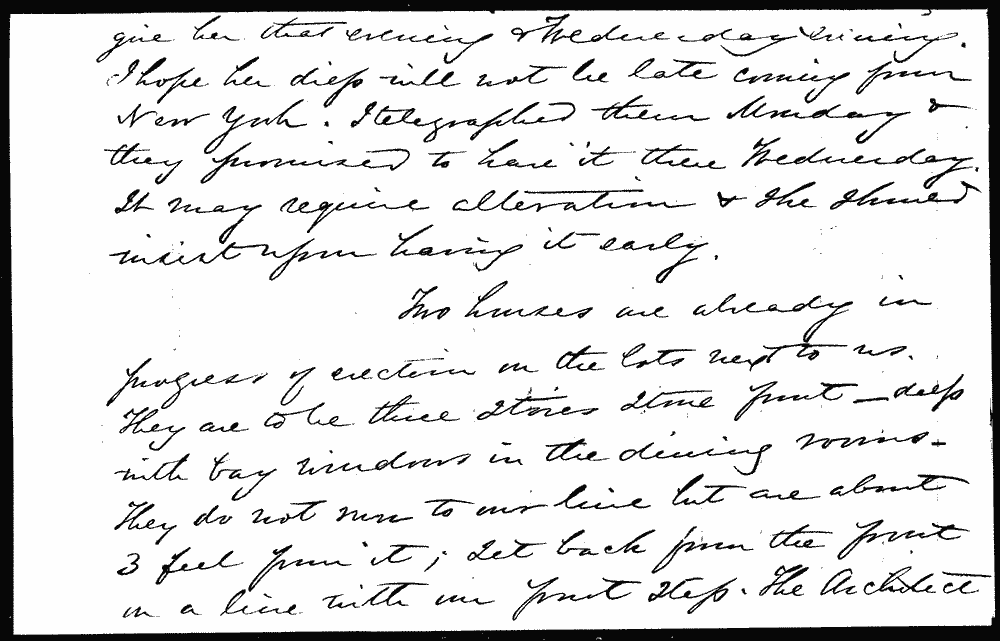 give her that evening & Wednesday evening.
I hope her dress will not be late coming from
New York. I telegraphed them Monday &
they promised to have it there Wednesday.
It may require alteration & she should
insist upon having it early.
Two houses are already in
progress of erection on the lots next to us.
They are to be three stories stone front — deep
with bay windows in the dining rooms -
They do not run to our line but are about
3 feet from it; set back from the front
on a line with our front step. The Architect